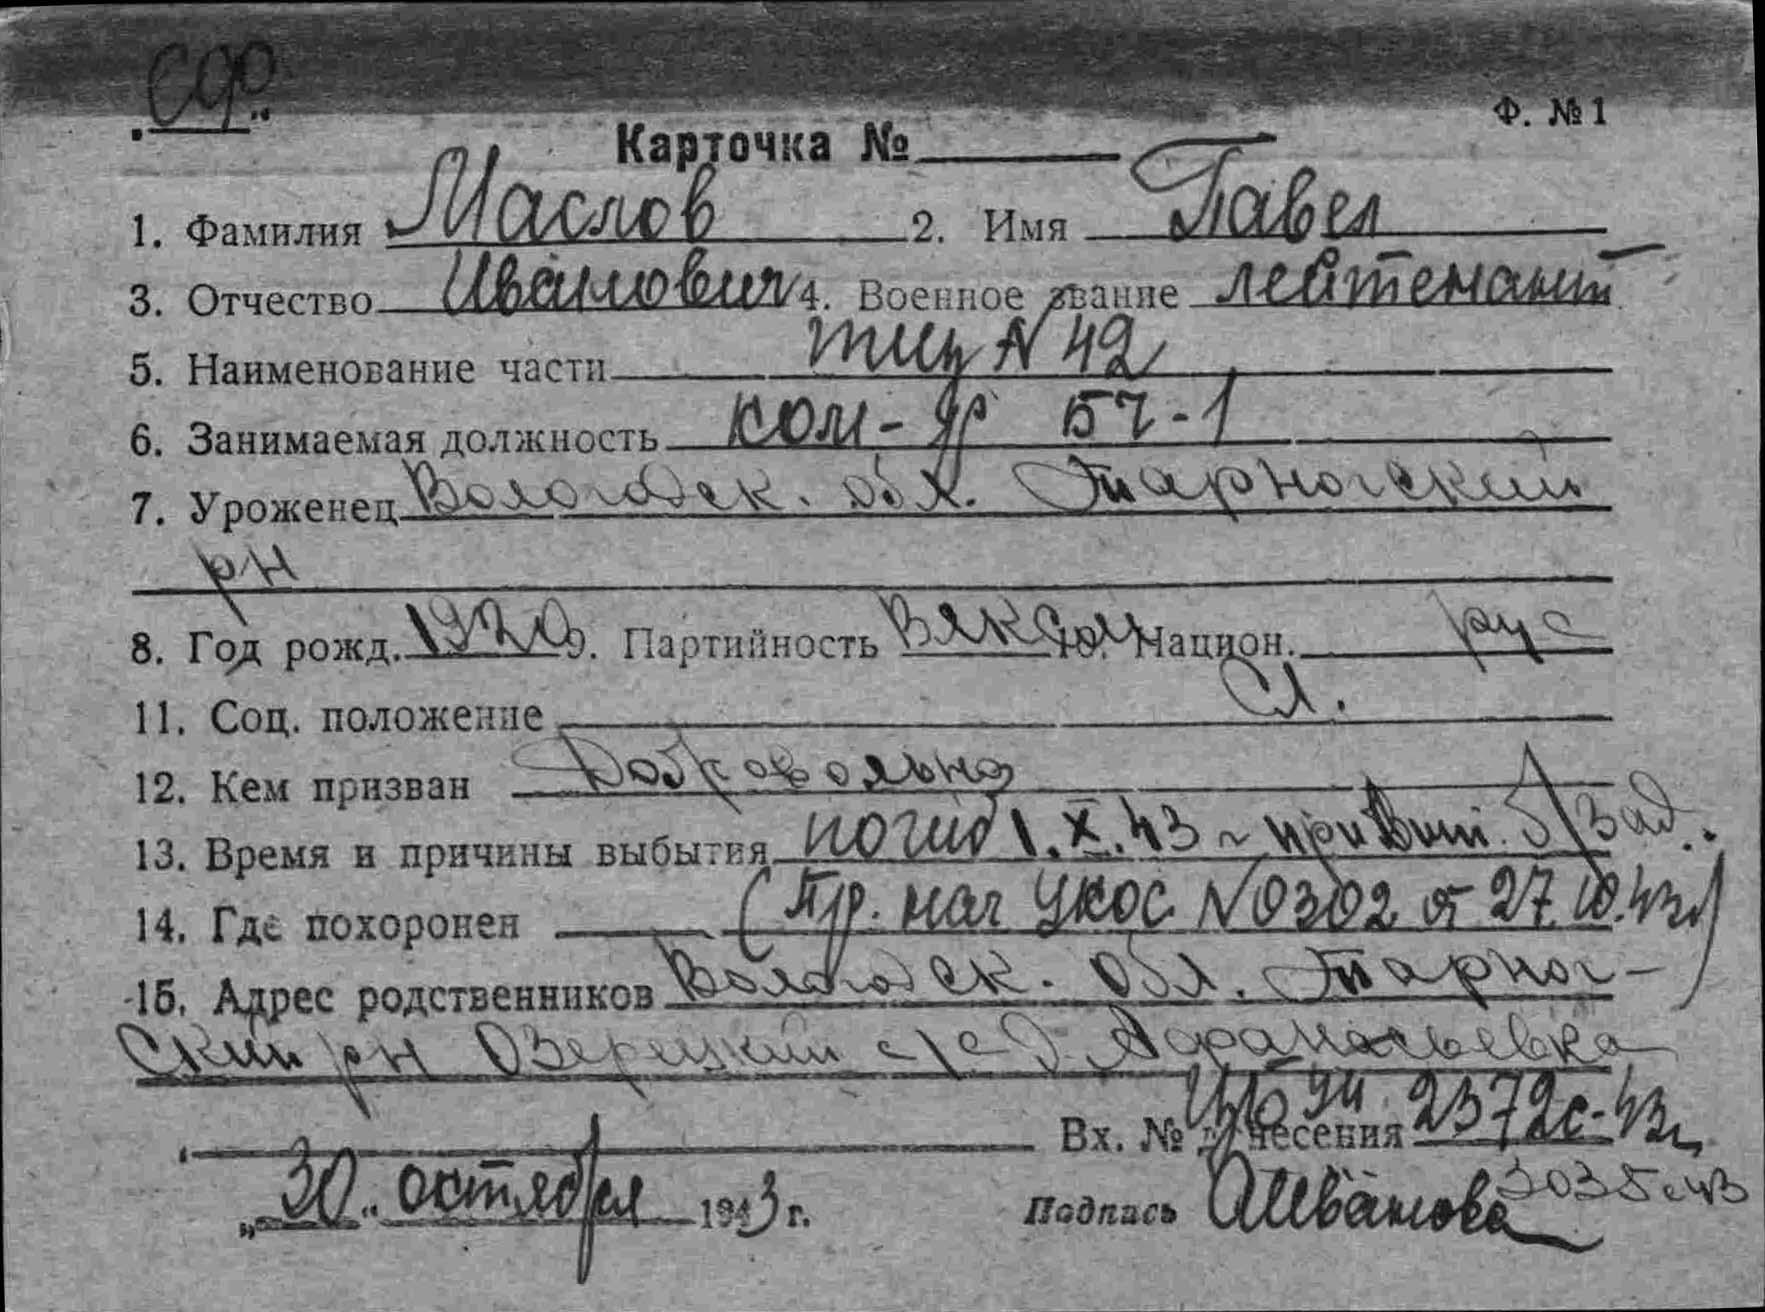 СФ
Ф. № 1
Карточка №
1. Фамилия Маслов 2. Имя Павел
3. Отчество Иванович 4. Военное звание лейтенант
5. Наименование части тщ N 42
6. Занимаемая должность ком-р БЧ-1
7. Уроженец Вологодск. обл. Тарногский
рн
8. Год рожд. 1920 9. Партийность ВЛКСМ 10. Национ. рус
11. Соц. положение Сл.
12. Кем призван Добровольно
13. Время и причины выбытия погиб 1.X.43 г при вып. б/зад.
14. Где похоронен (Пр. нач УКОС N 0302 от 27.10.43г)
15. Адрес родственников Вологодск. обл. Тарног-
ский рн Озерецкий с/с д. Афанасьевка
Вх. № донесения 2372с-43г
3035с43
„30" октября 1943 г. Подпись АИванова